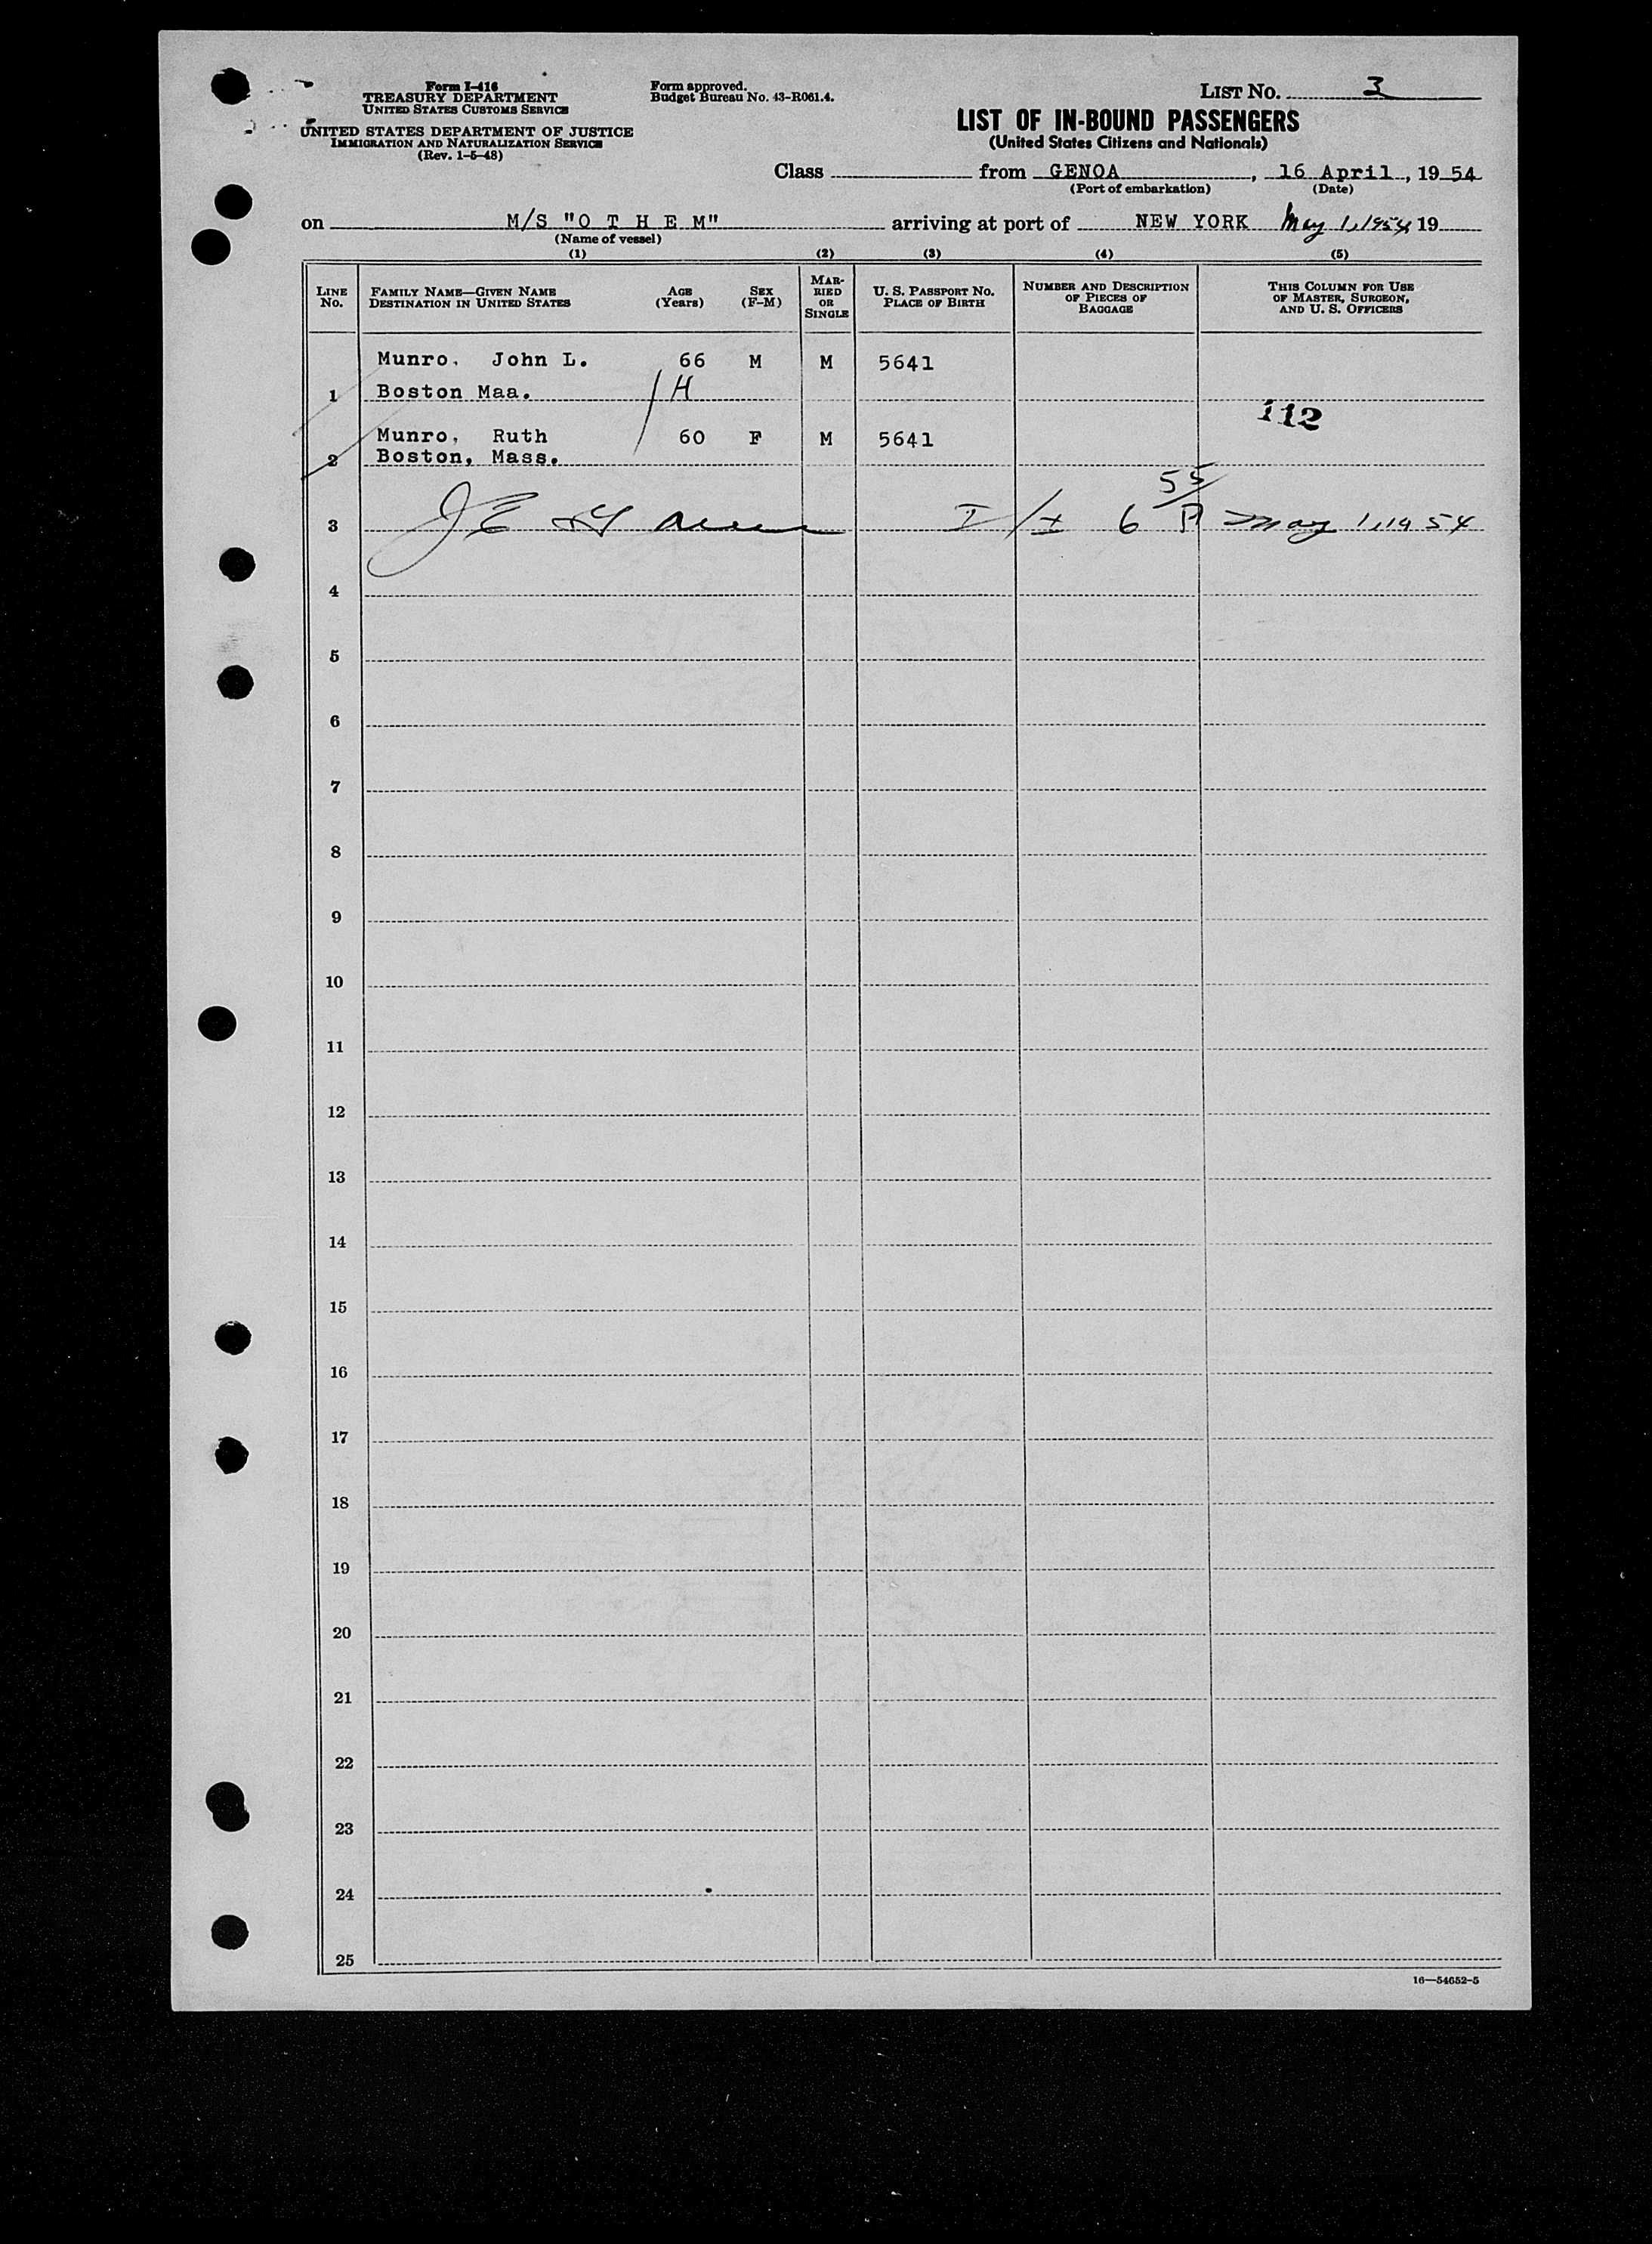 Form I-416
TREASURY DEPARTMENT
UNITED STATES CUSTOMS SERVICE
UNITED STATES DEPARTMENT OF JUSTICE
IMMIGRATION AND NATURALIZATION SERVICE
(Rev. 1-5-48)
Form approved.
Budget Bureau No. 43-R061.4.
LIST NO. 3
LIST OF IN-BOUND PASSENGERS
(United States Citizens and Nationals)
Class from GENOA, 16 April, 1954
(Port of embarkation) (Date)
on M/S "O T H E M" arriving at port of NEW YORK May 1, 1954 19
(Name of vessel)
(1) (2) (3) (4) (5)
LINE NO. FAMILY NAME—GIVEN NAME DESTINATION IN UNITED STATES AGE (Years) SEX (F-M) MARRIED OR SINGLE U. S. PASSPORT NO. PLACE OF BIRTH NUMBER AND DESCRIPTION OF PIECES OF BAGGAGE THIS COLUMN FOR USE OF MASTER, SURGEON, AND U. S. OFFICERS
Munro, John L. 66 M M 5641
1 Boston Maa. H
112
Munro, Ruth 60 F M 5641
2 Boston, Mass.
55
3 6 May 1, 1954
4
5
6
7
8
9
10
11
12
13
14
15
16
17
18
19
20
21
22
23
24
25
16—54652-5